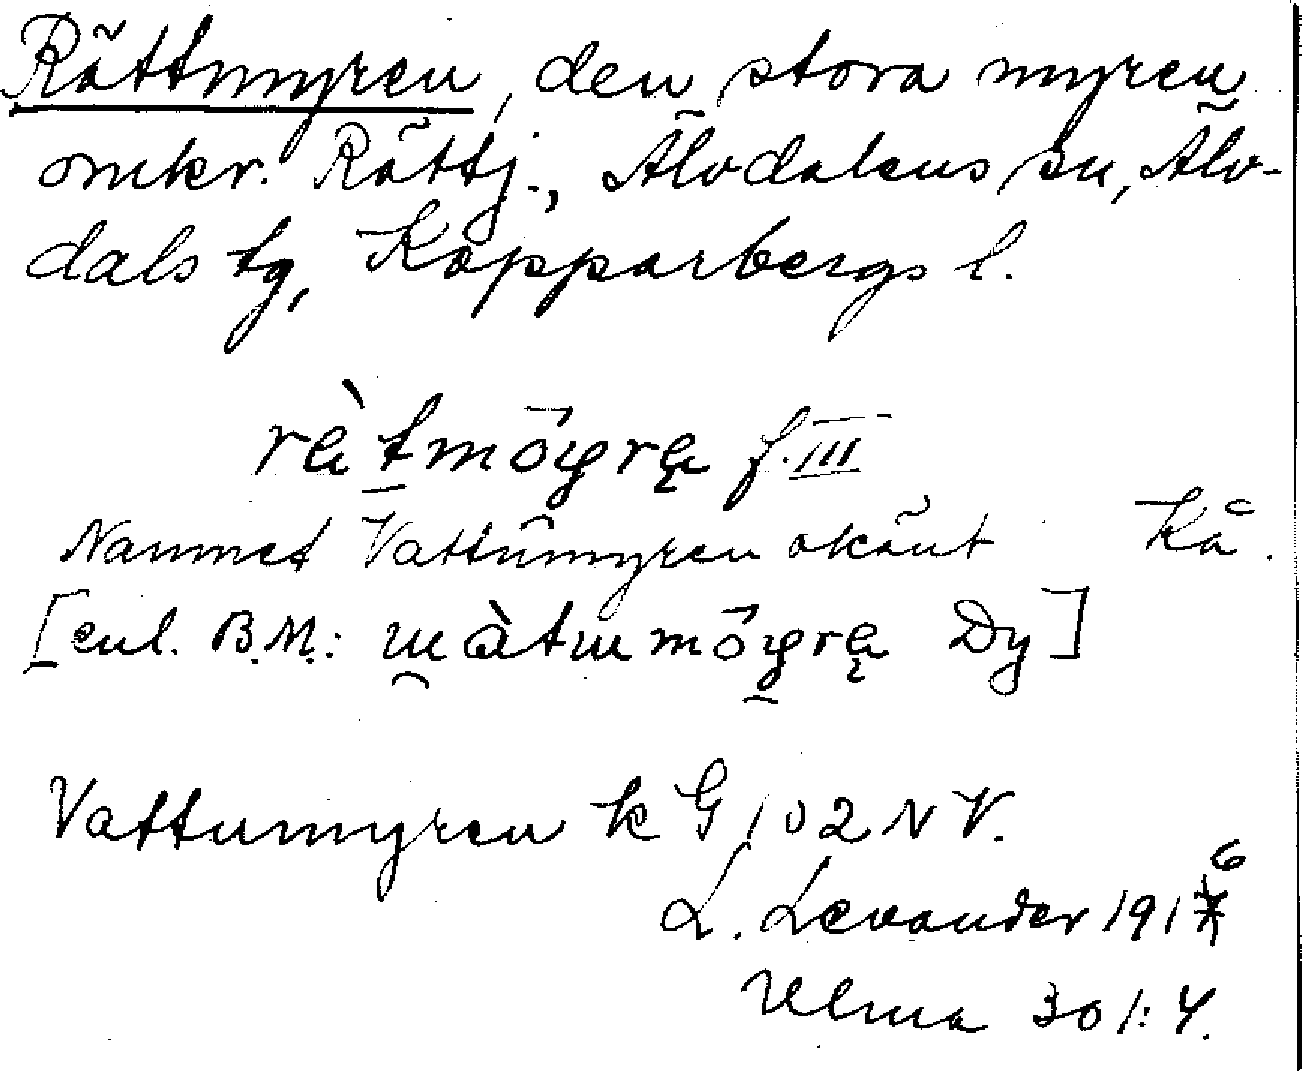 Rättmyren, den stora myren
omkr. Rättj., Älvdalens sn, Älv-
dals tg, Kopparbergs l.
rètmöyrę f. III
Namnet Vattumyren okänt Kå.
[enl. B.M.: u̯àtummöyrę Dy]
Vattumyren k G 102 NV.
L. Levander 1916
Ulma 301:4.